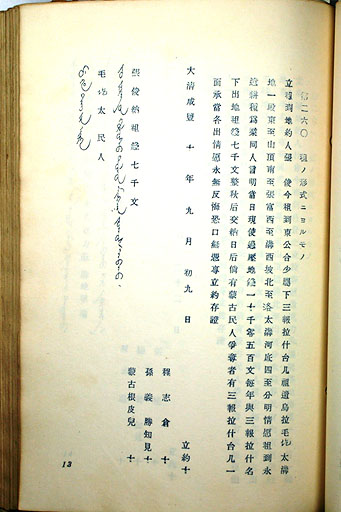 二六〇 租ノ形式ニヨルモノ
立租到地約人張 俊今租到東公合少廳下三報拉什台几祖道烏拉毛圪太溝
地一段東至山頂南至張富西至溝西坡北至洛太溝河底四至分明情愿租到永
遠耕種為業同人言明當日現使過壓地錢一十千零五百文每年與三報拉什名
下出地租錢七千文整秋后交納日后倘有蒙古民人爭奪者有三報拉什台几一
面承當各出情愿永無反悔恐口無憑專立約存證
大清咸豐 十 年 九 月 初九 日
立約十
程 志 倉 十
孫 義 勝 知見 十
蒙古根皮兒 十
張俊納租錢七千文
毛圪太民人
13